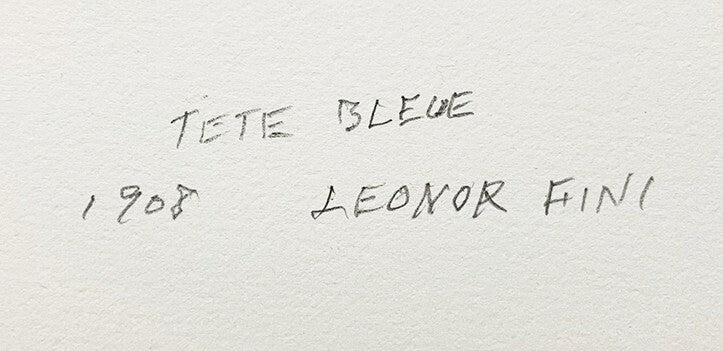 TETE BLEUE
1908 LEONOR FINI